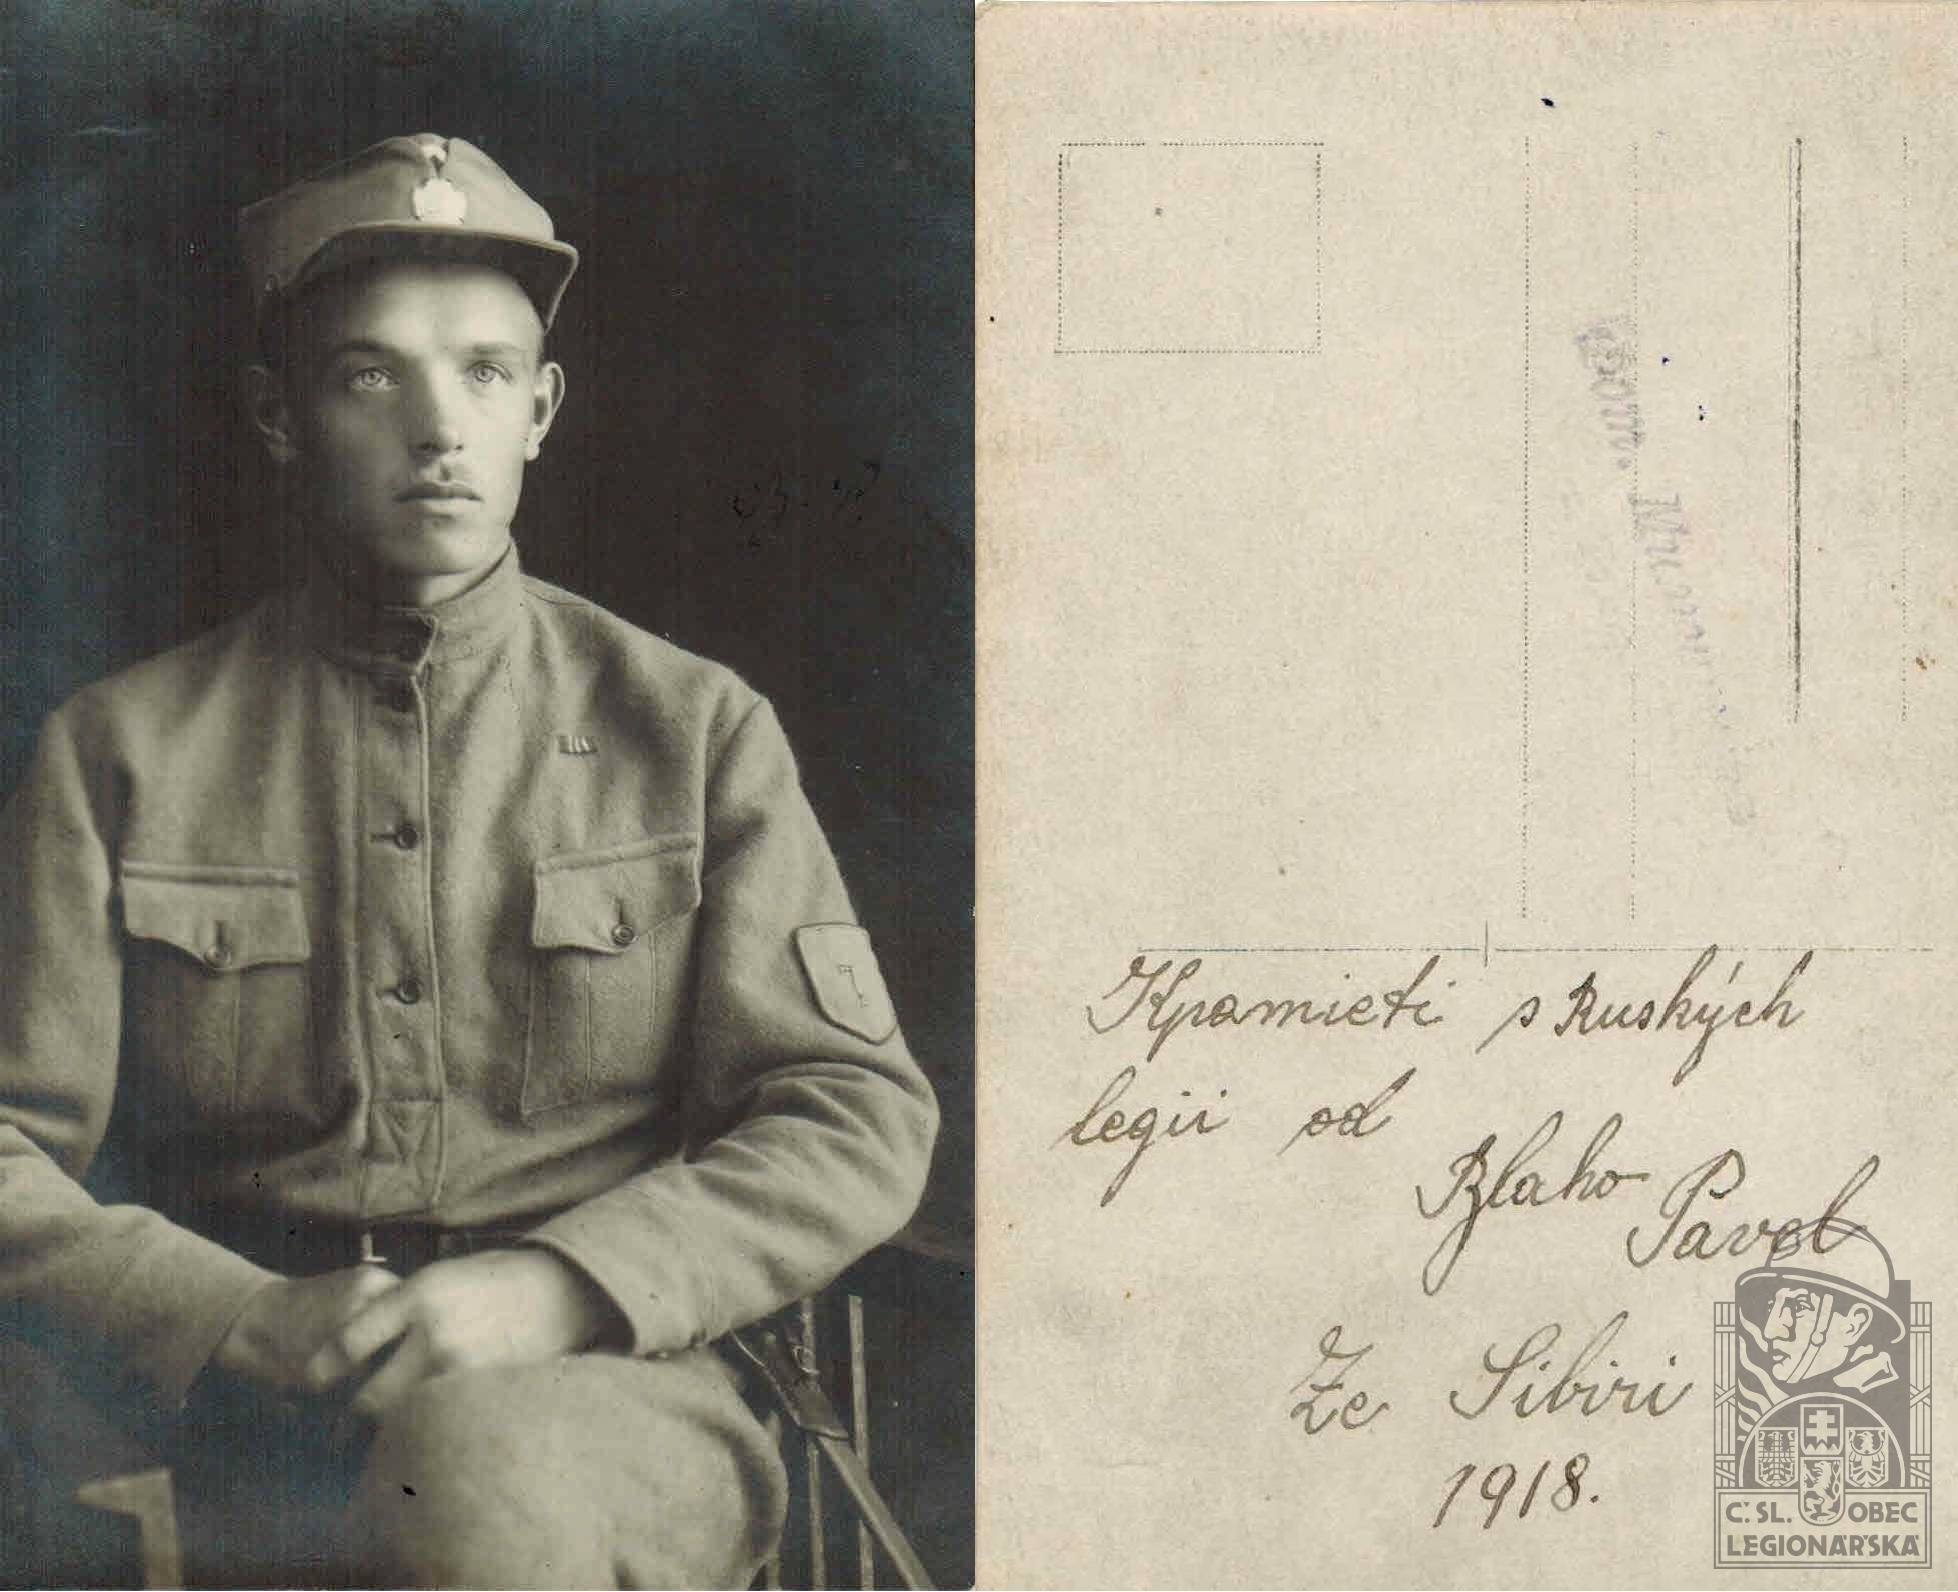 7
Kpamieti s Ruských
legii od
Blaho
Pavel
Ze Sibiri
1918.
Č.SL. OBEC
LEGIONÁŘSKÁ